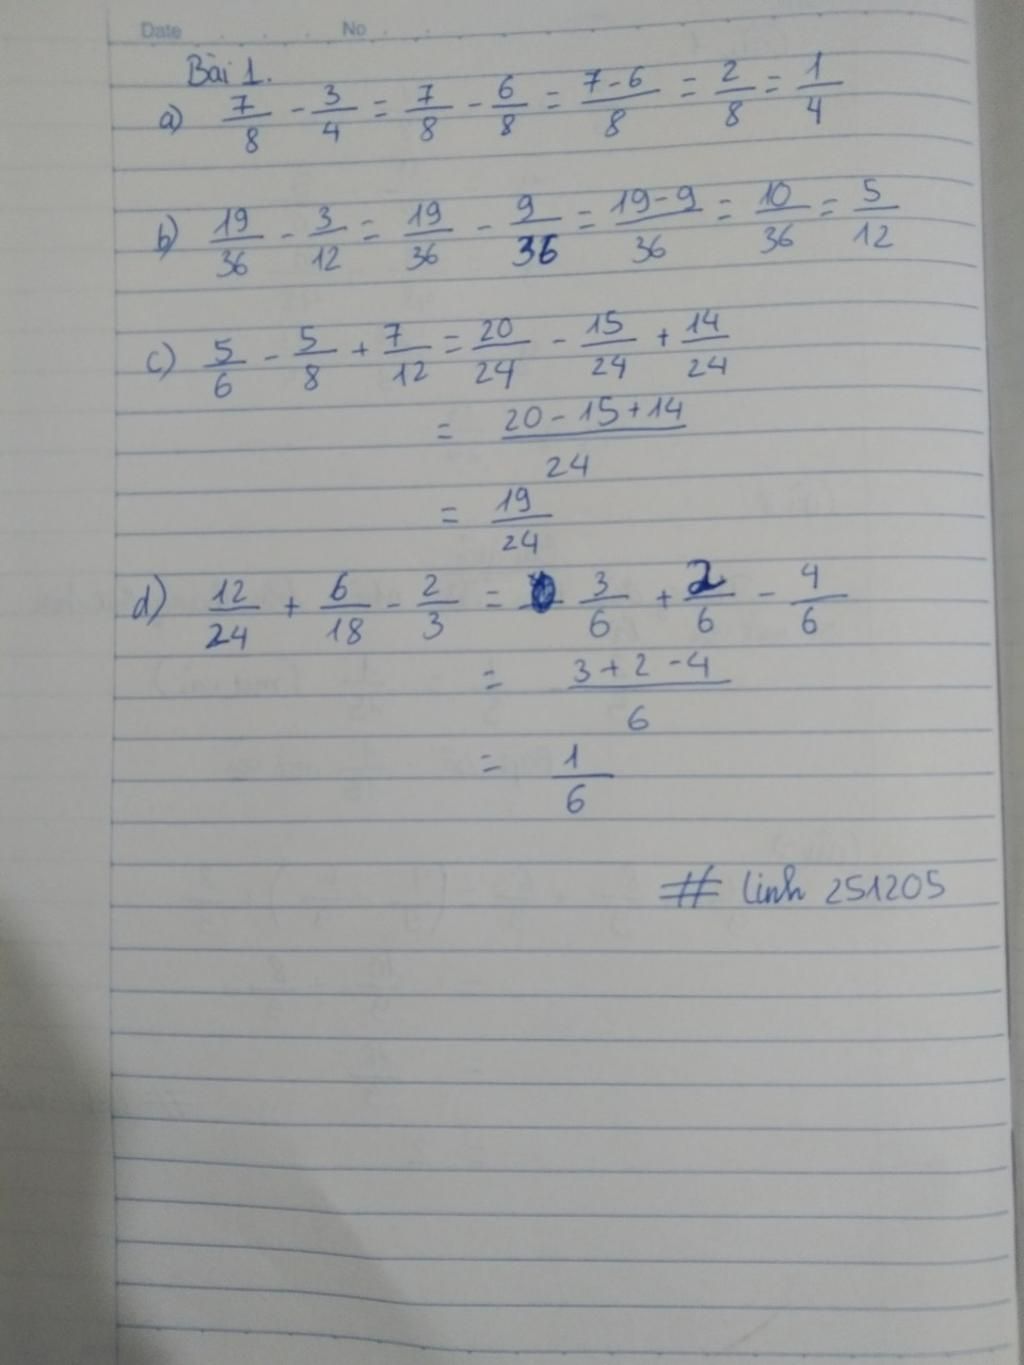 Date No
Bài 1.
a) 7/8 - 3/4 = 7/8 - 6/8 = 7-6/8 = 2/8 = 1/4
b) 19/36 - 3/12 = 19/36 - 9/36 = 19-9/36 = 10/36 = 5/12
c) 5/6 - 5/8 + 7/12 = 20/24 - 15/24 + 14/24
= 20-15+14/24
= 19/24
d) 12/24 + 6/18 - 2/3 = 3/6 + 2/6 - 4/6
= 3+2-4/6
= 1/6
# linh 251205